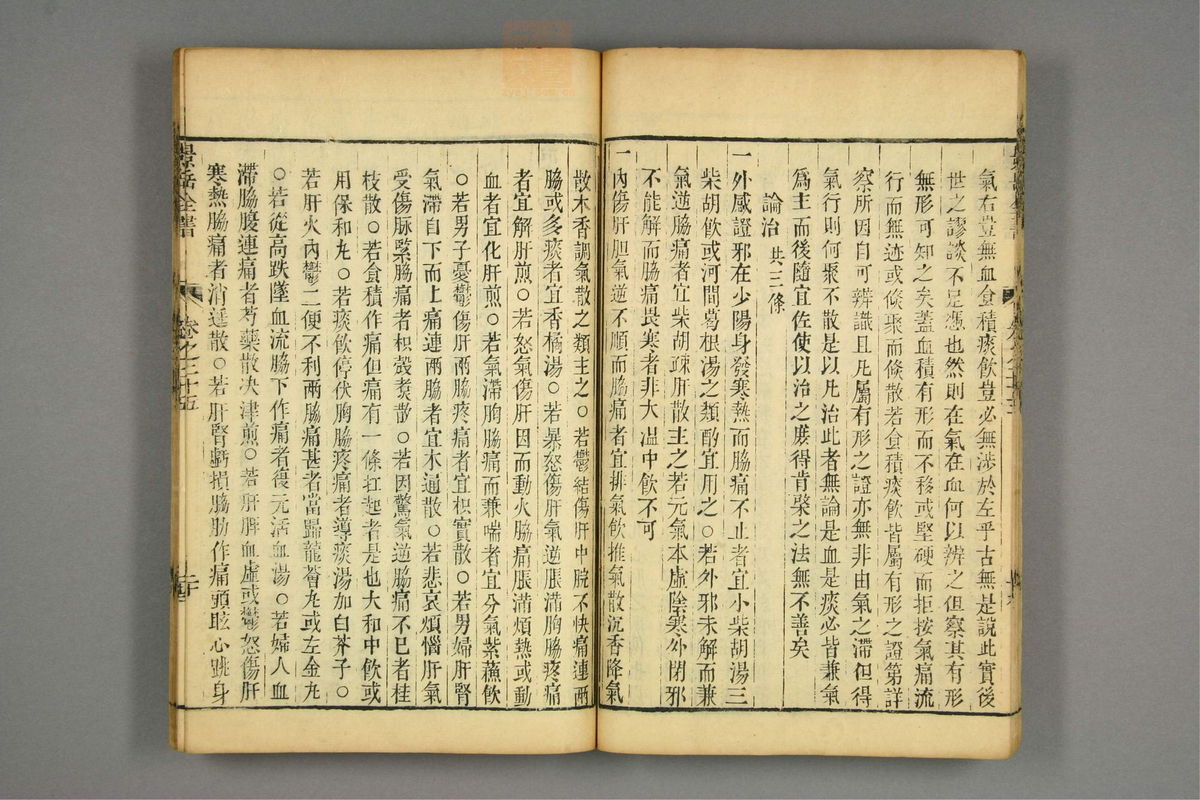 氣右豈無血食積痰飮豈必無涉於左乎古無是說此實後
世之謬談不足憑也然則在氣在血何以辨之但察其有形
無形可知之矣蓋血積有形而不移或堅硬而拒按氣痛流
行而無迹或倐聚而倐散若食積痰飮皆屬有形之證第詳
察所因自可辨識且凡屬有形之證亦無非由氣之滯但得
氣行則何聚不散是以凡治此者無論是血是痰必皆兼氣
爲主而後隨宜佐使以治之庻得肯綮之法無不善矣
論治 共三條
一外感證邪在少陽身發寒熱而脇痛不止者宜小柴胡湯三
柴胡飮或河間葛根湯之類酌宜用之○若外邪未解而兼
氣逆脇痛者宜柴胡疎肝散主之若元氣本虛陰寒外閉邪
不能解而脇痛畏寒者非大溫中飮不可
一內傷肝胆氣逆不順而脇痛者宜排氣飮推氣散沉香降氣
散木香調氣散之類主之○若鬱結傷肝中脘不快痛連兩
脇或多痰者宜香橘湯○若暴怒傷肝氣逆脹滿胸脇疼痛
者宜解肝煎○若怒氣傷肝因而動火脇痛脹滿煩熱或動
血者宜化肝煎○若氣滯胸脇痛而兼喘者宜分氣紫蘓飮
○若男子憂鬱傷肝兩脇疼痛者宜枳實散○若男婦肝腎
氣滯自下而上痛連兩脇者宜木通散○若悲哀煩惱肝氣
受傷脉緊脇痛者枳殻煑散○若因驚氣逆脇痛不已者桂
枝散○若食積作痛但痛有一條扛起者是也大和中飮或
用保和丸○若痰飮停伏胸脇疼痛者導痰湯加白芥子○
若肝火內鬱二便不利兩脇痛甚者當歸龍薈丸或左金丸
○若從高跌墜血流脇下作痛者復元活血湯○若婦人血
滯脇腹連痛者芍藥散决津煎○若肝脾血虛或鬱怒傷肝
寒熱脇痛者消遥散○若肝腎虧損脇肋作痛頭眩心跳身
景岳全書
卷之二十五